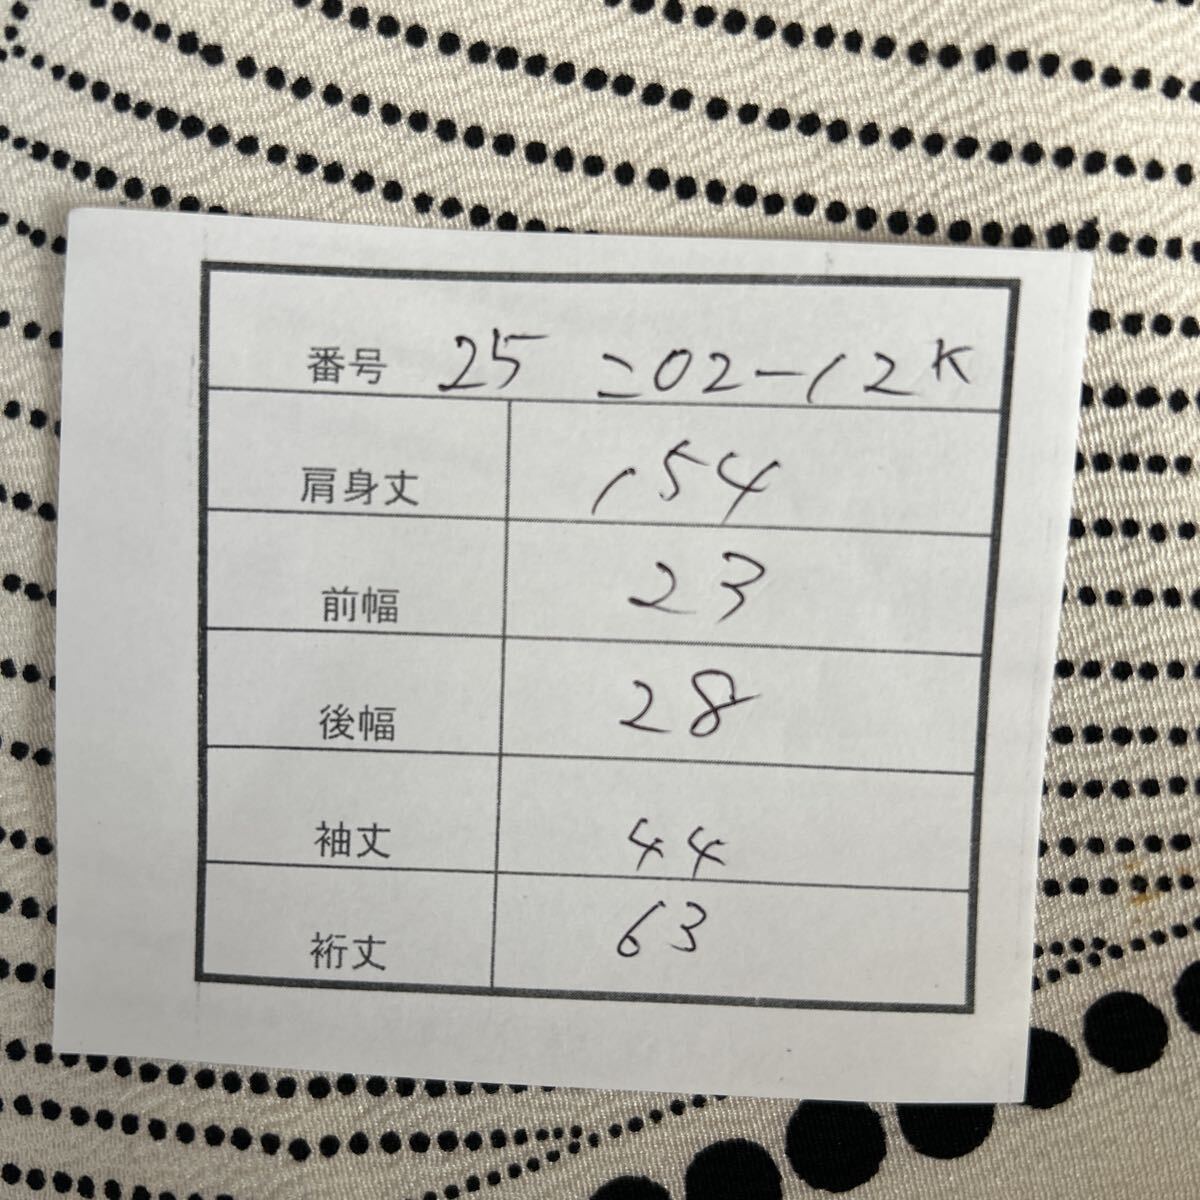 番号 25 ニ02-12K
肩身丈 154
前幅 23
後幅 28
袖丈 44
裄丈 63